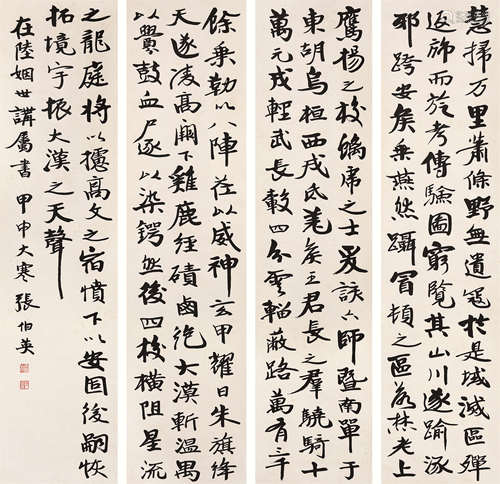 慧掃万里蕭條野無遺寇於是域滅區殫
返斾而旋考傳驗圖窮覽其山川遂踰涿
邪跨安矦乘燕然躡冒頓之區落焚老上
鷹揚之校螭虎之士爰該六師暨南單于
東胡烏桓西戎氐羌矦王君長之群驍騎十
萬元戎輕武長轂四分雲輜蔽路萬有三千
餘乘勒以八陣莅以威神玄甲耀日朱旗絳
天遂凌高闕下雞鹿經磧鹵絶大漠斬溫禺
以釁鼓血尸逐以染鍔然後四校橫阻星流
之龍庭將以攄高文之宿憤下以安固後嗣恢
拓境宇振大漢之天聲
在陸姻世講屬書 甲申大寒 張伯英